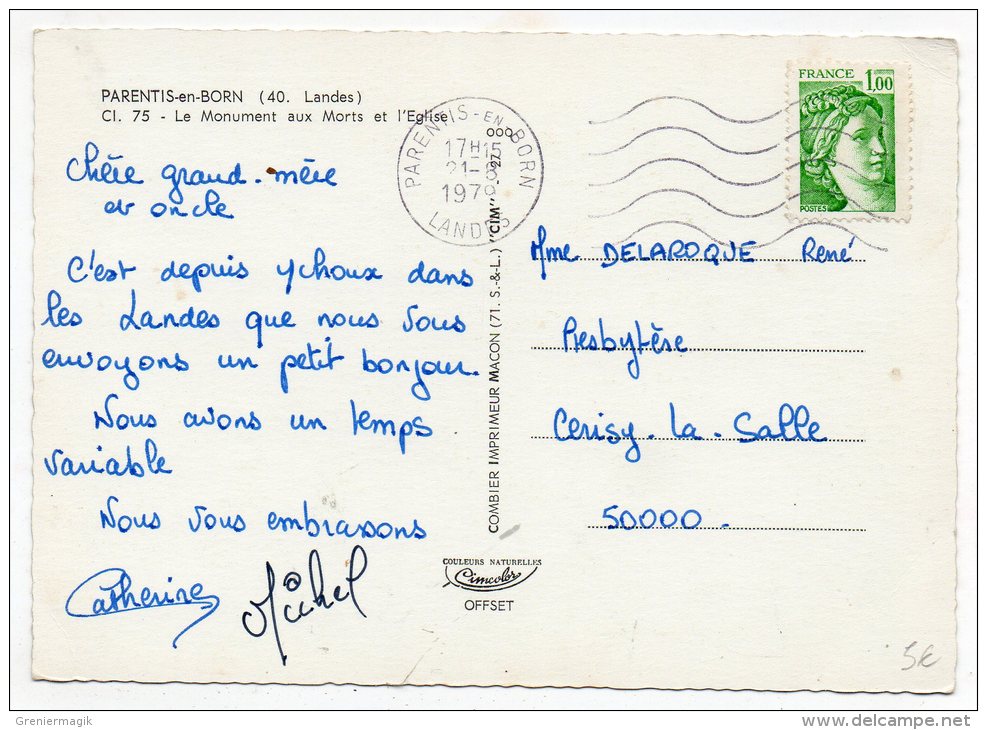 PARENTIS-en-BORN (40. Landes)
Cl. 75 - Le Monument aux Morts et l'Eglise
Chère grand-mère
et oncle
C'est depuis Ychoux dans
les Landes que nous vous
envoyons un petit bonjour.
Nous avons un temps
variable
Nous vous embrassons
Catherine
Michel
PARENTIS-EN-BORN
17H15
1979
LANDES
COMBIER IMPRIMEUR MACON (71. S.-&-L.) "CIM"
COULEURS NATURELLES
Cimcolor
OFFSET
FRANCE 1,00
POSTES
Mme DELAROQUE René
Presbytère
Cerisy-la-Salle
50000.
5€
Greniermagik
www.delcampe.net